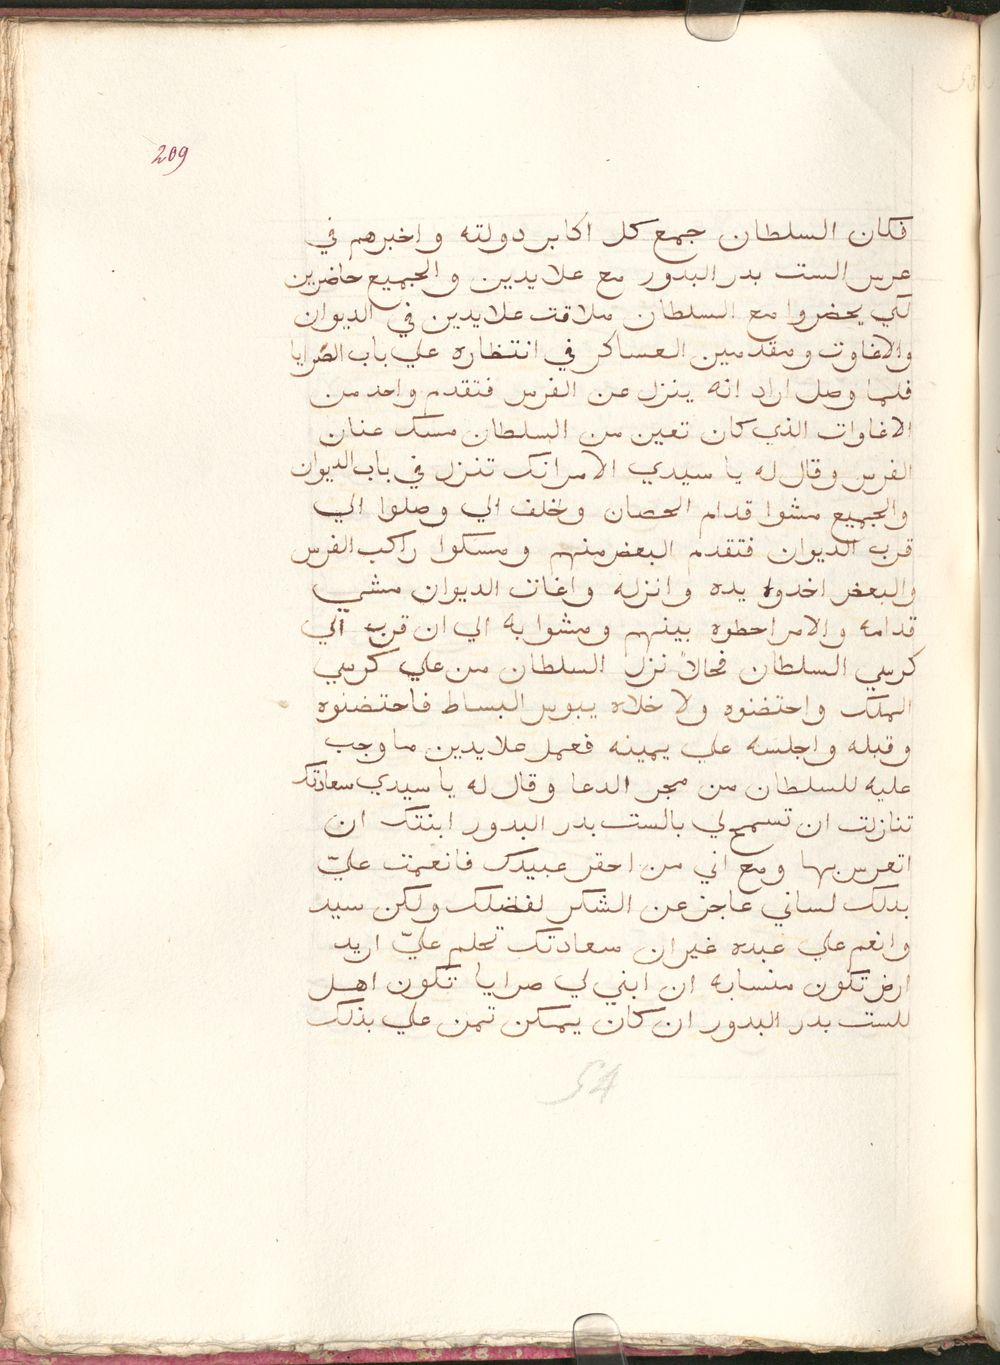 209
فكان السلطان جمع كل اكابر دولته واخبرهم في
عرس الست بدر البدور مع علايدين والجميع حاضرين
لكي يحضروا مع السلطان ملاقت علايدين في الديوان
والاغاوت ومقدمين العساكر في انتظاره علي باب الصرايا
فلما وصل اراد انه ينزل عن الفرس فتقدم واحد من
الاغاوات الذي كان تعين من السلطان مسك عنان
الفرس وقال له يا سيدي الامر انك تنزل في باب الديوان
والجميع مشوا قدام الحصان وخلف الي وصلوا الي
قرب الديوان فتقدم البعض منهم ومسكوا راكب الفرس
والبعض اخدوا يده وانزله واغات الديوان مشي
قدامه والامرا حطوه بينهم ومشوا به الي ان قرب الي
كرسي السلطان فحالاً نزل السلطان من علي كرسي
الملك واحتضنوه ولا خلاه يبوس البساط فاحتضنوه
وقبله واجلسه علي يمينه فعمل علايدين ما وجب
عليه للسلطان من مجر الدعا وقال له يا سيدي سعادتك
تنازلت ان تسمح لي بالست بدر البدور ابنتك ان
اتعرس بها ومع اني من احقر عبيدك فانعمت عليّ
بدلك لساني عاجز عن الشكر لفضلك ولكن سيد
وانعم علي عبده غير ان سعادتك تحلم عليّ اريد
ارض تكون منسابه ان ابني لي صرايا تكون اهل
للست بدر البدور ان كان يمكن تمن علي بذلك
54